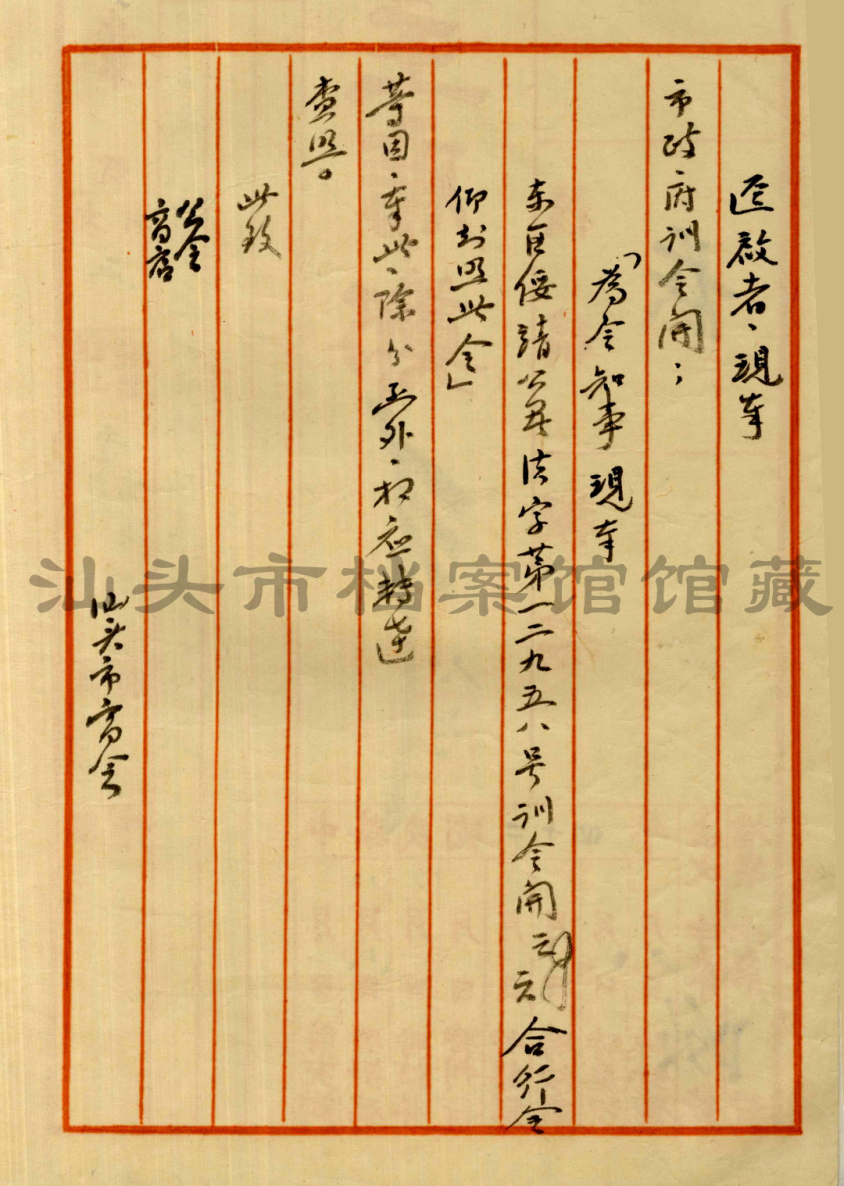 逕啟者、現奉
市政府訓令開：
「為令知事現奉
东區綏靖公署法字第一二九五八号訓令開云云合行令
仰知照此令」
等因、奉此、除分函外、相应轉達
查照。
此致
公会
商店
汕头市商会
汕头市档案馆馆藏